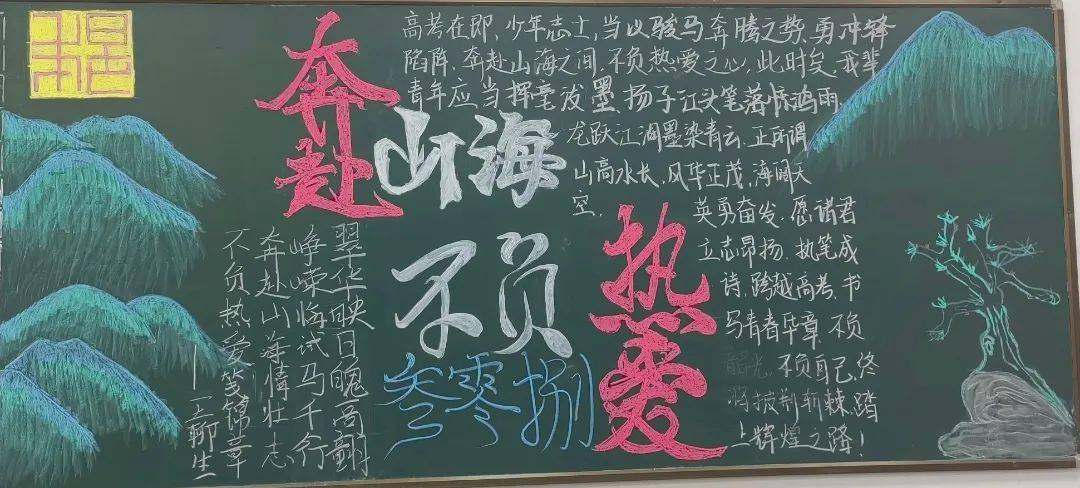 奔赴
山海
不负
热爱
叁零捌
高考在即,少年志士,当以骏马奔腾之势,勇冲锋
陷阵,奔赴山海之间,不负热爱之心,此时矣,我辈
青年应当挥毫泼墨,扬子江头笔落惊鸿雨,
龙跃江涧墨染青云,正所谓
山高水长,风华正茂,海阔天
空。
英勇奋发,愿诸君
立志昂扬,执笔成
诗,跨越高考,书
写青春华章,不负
韶光,不负自己,终
将披荆斩棘,踏
上辉煌之路!
翠华映日
峥嵘临试马千行
奔赴山海情壮志
不负热爱笔锦章